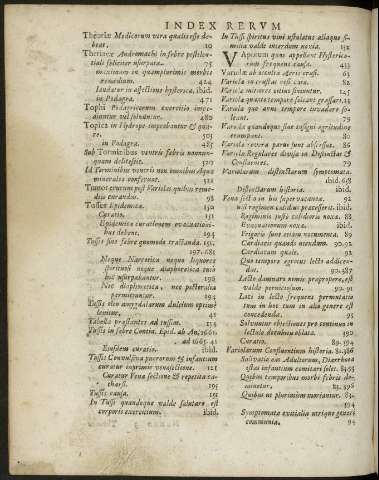 INDEX RERVM
Theoriæ Medicorum vera qualis esse debeat. 10
Theriaca Andromachi in febre pestilentiali feliciter usurpata. 75
maximum in quamplurimis morbis remedium. 424
laudatur in affectione hysterica. ibid.
in Podagra. 471
Tophi Podagricorum exercitio imediuntur vel solvuntur. 480
Topica in Hydrope improbantur & quare. 503
in Podagra. 485
Sub Torminibus ventris febris nonnunquam delitescit. 520
Ad Tormina ventris non omnibus Aquæ minerales conferunt. 528
98
Tussis Epidemica. 150
Curatio. 151
Epidemica curationem evacuationibus debent. 194
Tussis sine febre quomodo tractanda. 151.
197. 681
Neque Narcotica neque liquores spirituosi neque diaphoretica tuto hic usurpabuntur. 196
Nec diaphoretica, nec pectoralia permittuntur. 194
Tussis oleo amygdalarum dulcium optime lenitur. 41
Tabella præstantes ad tussim. 135
Tussis in febre Contin. Epid. ab An. 1661. ad 1665. 41
Eiusdem curatio. ibid.
Tussis Convulsiva puerorum & infantum curatur inprimis venæsectione. 121
Curatur Venæ sectione & repetita catharsi. 195
Tussis causa. 151
In Tussi quandoque valde salutare est corporis exercitium. ibid.
In Tussi spiritus vini ustulatus aliaque similia valde interdum noxia. 152
VApores quos appellant Hystericorum frequens causa. 433
Variolæ ab alcrita Aeris crasi. 63
Variolæ in crustas vesi cura. 82
Variolæ mitiores citius finiuntur. 125
Variolæ quanto tempore soleant grassari. 15
Variolæ quo anni tempore invadere soleant. 79
Variolæ quandoque sine insigni ægritudine eveniunt. 80
Variolis reverà parùm sunt abscessus. 86
Variolæ Regulares divisa in Distinctas & Confluentes. 79
Variolarum distinctarum symptomata. ibid.
Distinctarum historia. ibid.
Venæ sectio in his supervacanea. 92
nisi regimen calidius præcesserit. ibid.
Regiminis justo calidioris noxa. 88
Evacuationum noxa. ibid.
Frigoris sunt etiam nonnumquam. 89
Cardiaca quando utendum. 90. 92
Cardiacum quale. 92
Quo tempore ægrotus lecto addicendus. 90. 387
Lecto damnari nimis præpropere, est valde perniciosum. 90. 91
Lati in lecto frequens permutatio tum in hoc tum in alio genere est concedenda. 95
Solvuntur objectiones pro continuo in lectulo decubitu oblata. 390
Curatio. 89. 394
Variolarum Confluentium historia. 81. 386
Salivatio eas Adultorum, Diarrhœa istas infantium comitari solet. 84. 85
Quibus temporibus morbis febris devincatur. 83. 396
Quibus ut plurimum moriantur. 83.
394
Symptomata exitialia utrique generi communia. 95